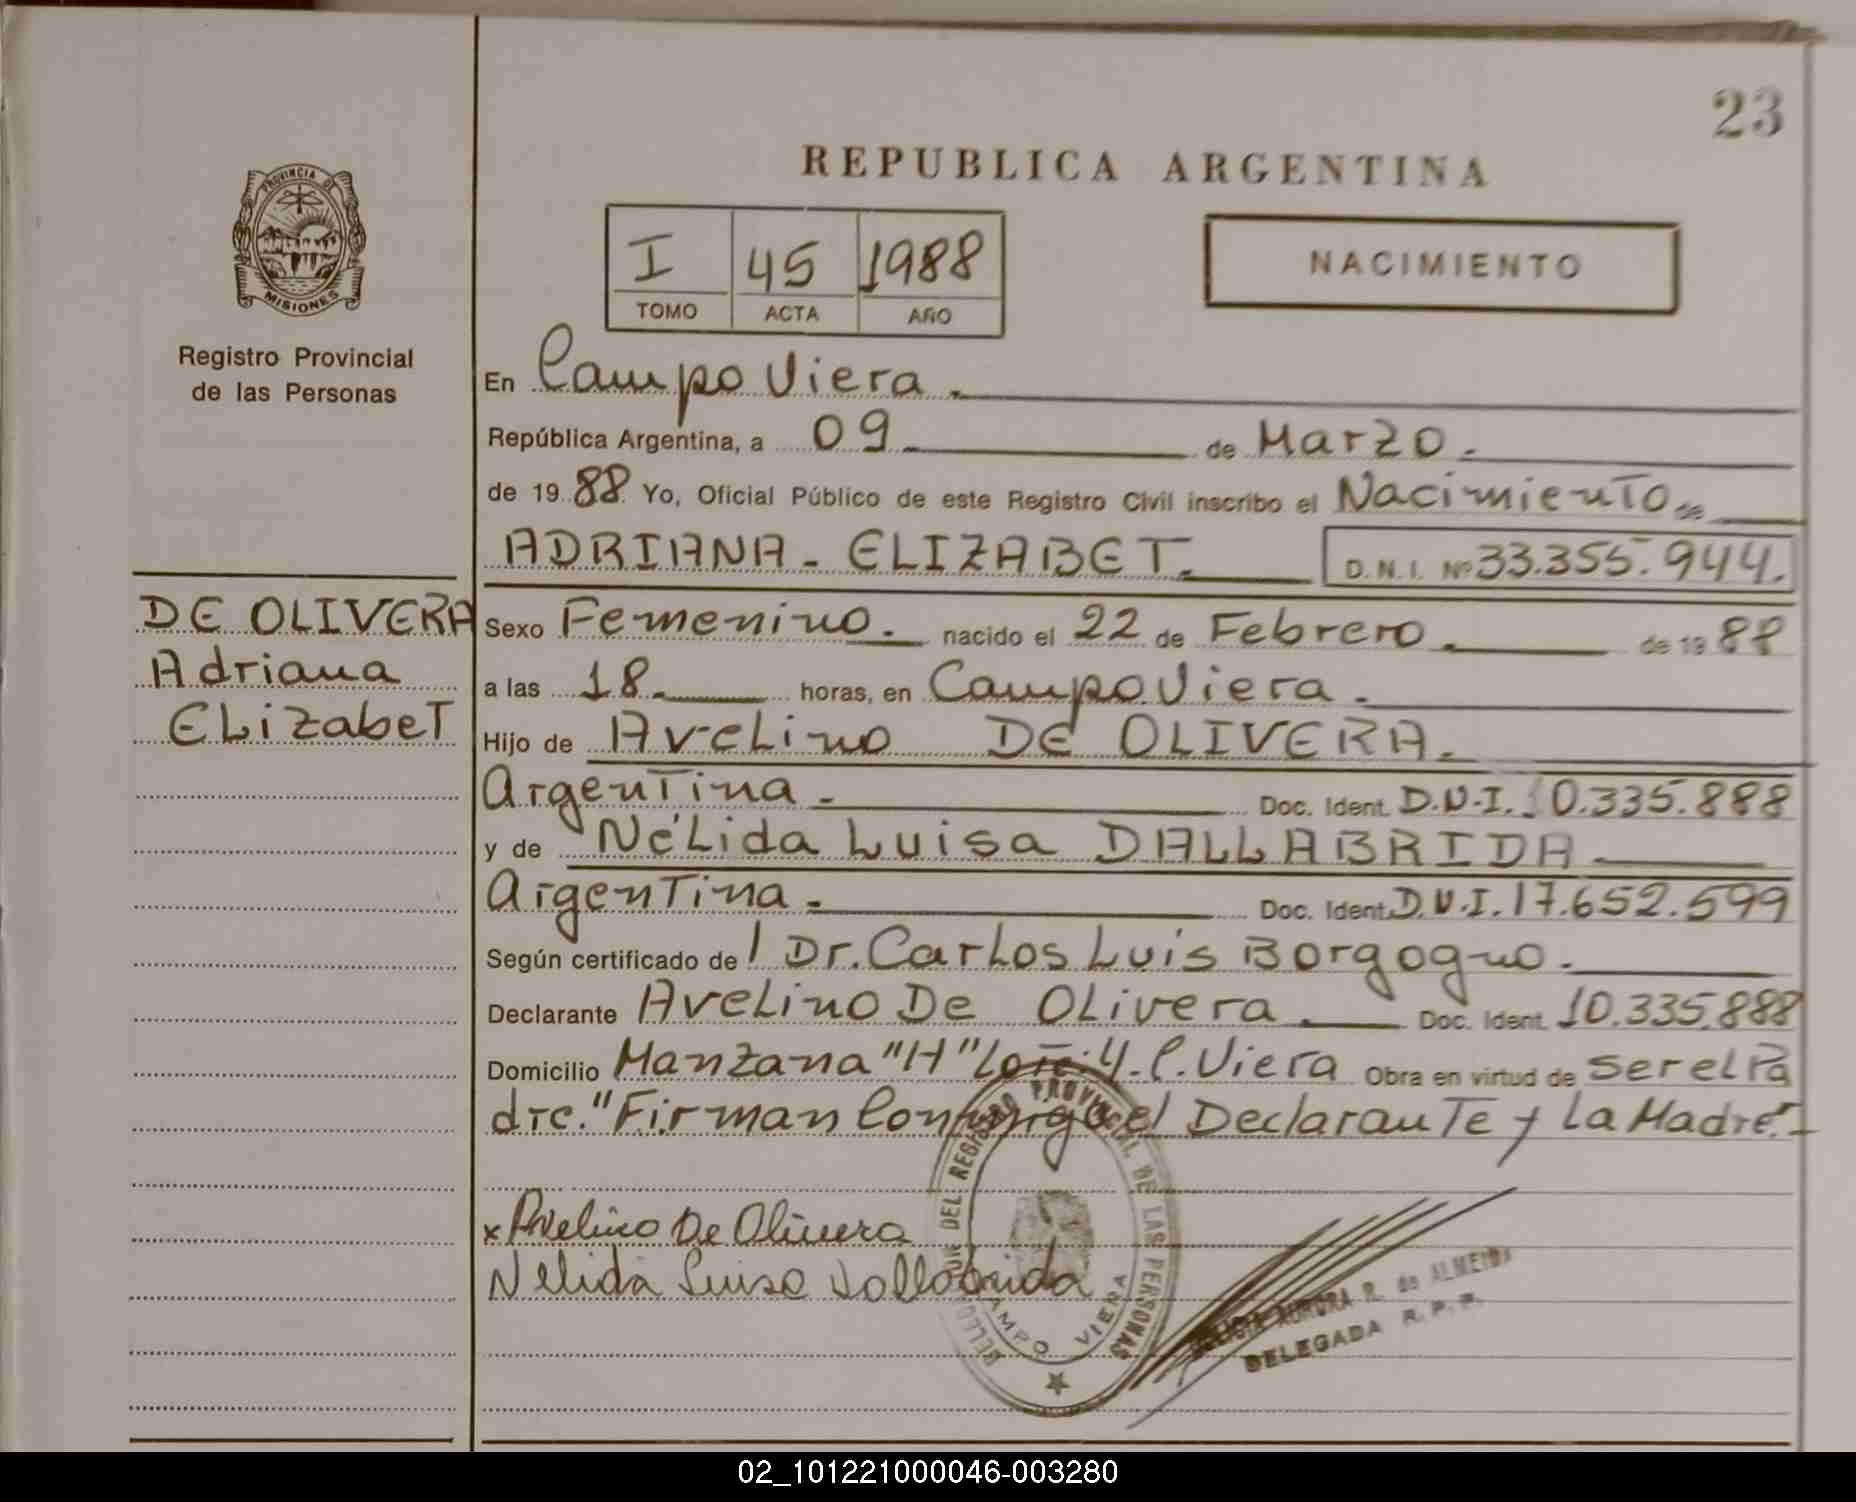 23
REPUBLICA ARGENTINA
PROVINCIA DE
MISIONES
Registro Provincial
de las Personas
I 45 1988
TOMO ACTA AÑO
NACIMIENTO
En Campo Viera.
República Argentina, a 09 de Marzo.
de 19 88 Yo, Oficial Público de este Registro Civil inscribo el Nacimiento de
ADRIANA - ELIZABET. D.N.I. Nº 33.355.944.
DE OLIVERA
Adriana
ELizabeT
Sexo Femenino. nacido el 22 de Febrero. de 19 88
a las 18 horas, en Campo Viera.
Hijo de AveLino DE OLIVERA.
ArgenTina. Doc. Ident. D.N.I. 10.335.888
y de NéLida Luisa DALLABRIDA
ArgenTina. Doc. Ident. D.N.I. 17.652.599
Según certificado de l Dr. CarLos Luis Borgogno.
Declarante AveLino De OLivera. Doc. Ident. 10.335.888
Domicilio Manzana "H" Lote: 4. C. Viera Obra en virtud de ser eL Pa
dre. "Firman Conmigo el DeclaranTe y La Madre". -
x Avelino De Olivera
Nelida Luisa Dallabrida
DEL REGISTRO PROVINCIAL DE LAS PERSONAS
CAMPO VIERA
AURORA R. de ALMEIDA
DELEGADA R.P.P.
02_101221000046-003280